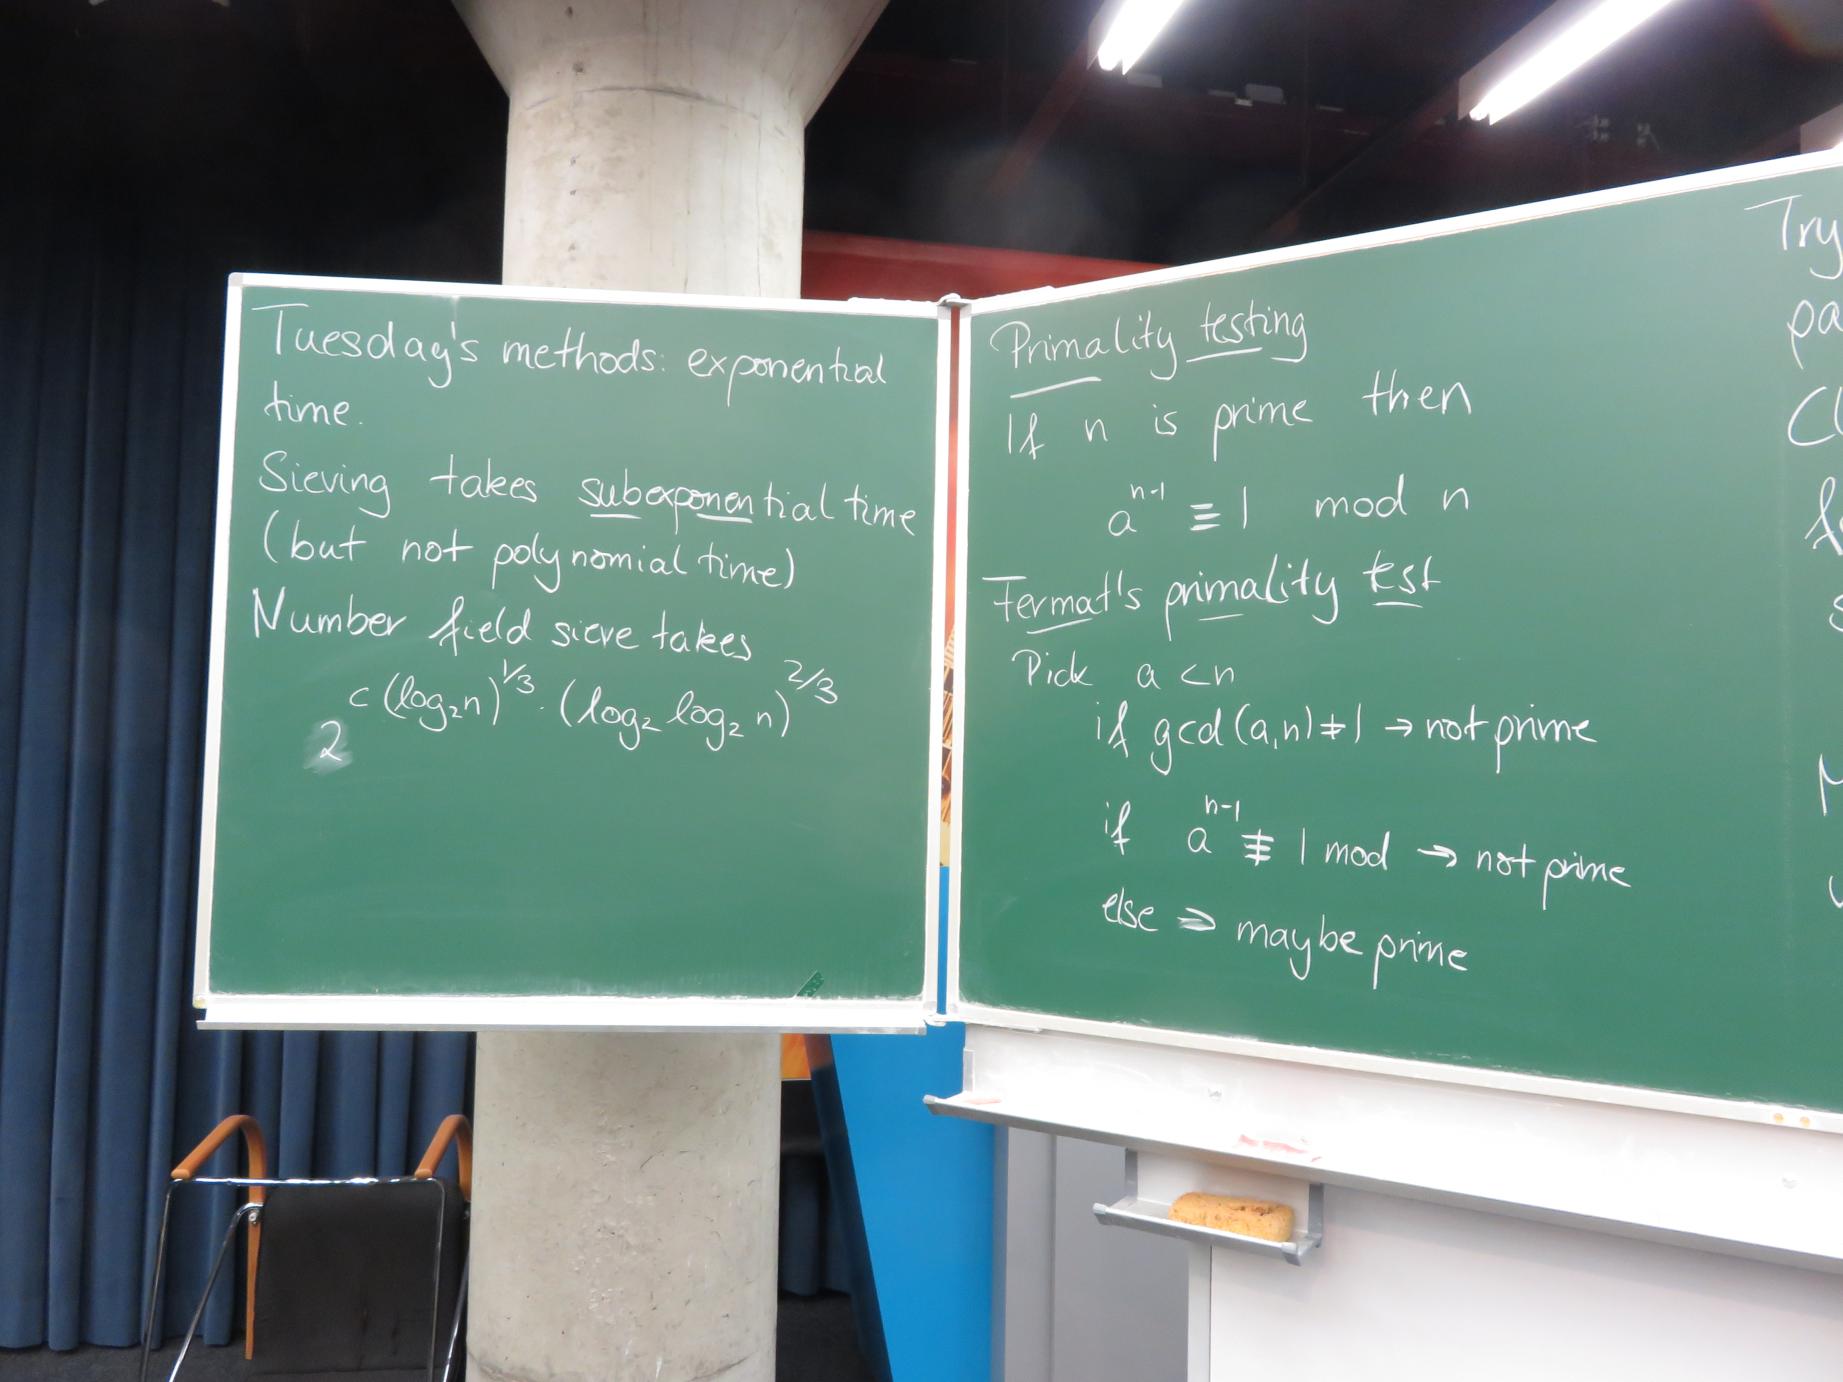 Tuesday's methods: exponential
time.
Sieving takes subexponential time
(but not polynomial time)
Number field sieve takes
2^{c (log₂n)^{1/3} · (log₂ log₂ n)^{2/3}}
Primality testing
If n is prime then
a^{n-1} ≡ 1 mod n
Fermat's primality test
Pick a < n
if gcd(a,n) ≠ 1 → not prime
if a^{n-1} ≢ 1 mod → not prime
else ⇒ maybe prime
Try